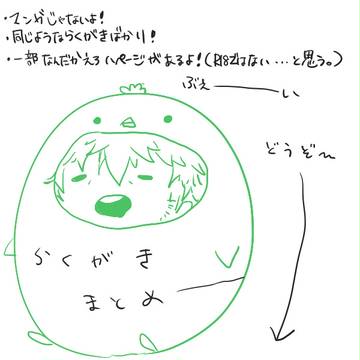 ・マンガじゃないよ!
・同じようならくがきばかり!
・一部なんだかえろいページがあるよ!(R18ではない…と思う。)
ぶぇーーい
どうぞ〜
らくがき
まとめ